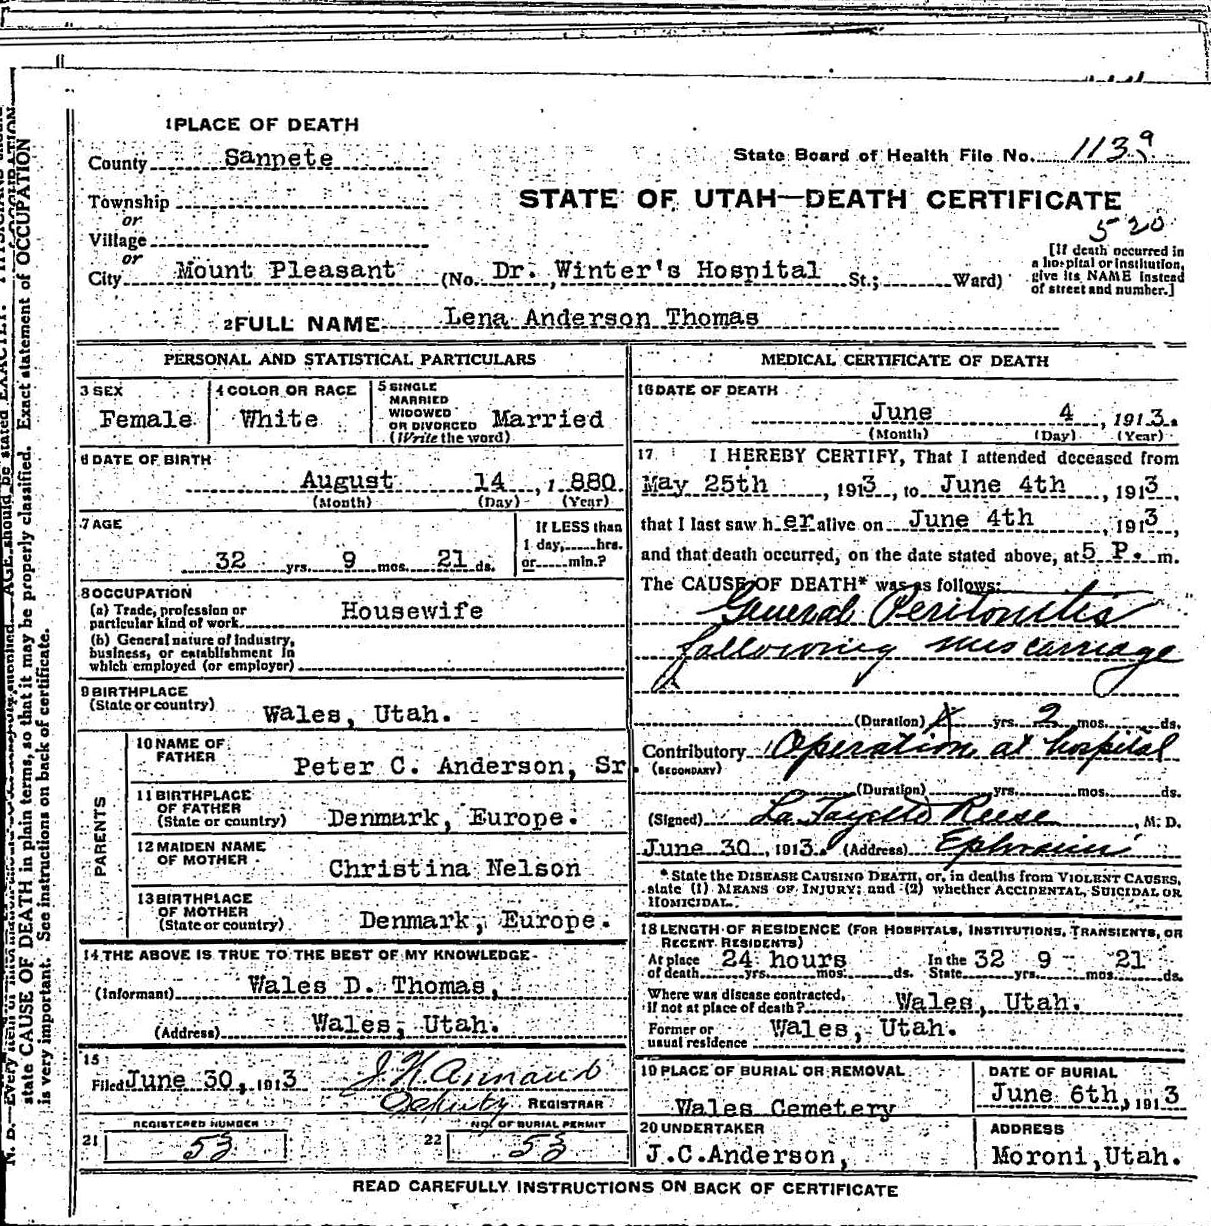 1 PLACE OF DEATH
County Sanpete
State Board of Health File No. 1139
Township
or
STATE OF UTAH—DEATH CERTIFICATE
520
Village
or
City Mount Pleasant (No. Dr. Winter's Hospital St.; Ward)
[If death occurred in a hospital or institution, give its NAME instead of street and number.]
2 FULL NAME Lena Anderson Thomas
PERSONAL AND STATISTICAL PARTICULARS
3 SEX
Female
4 COLOR OR RACE
White
5 SINGLE
MARRIED
WIDOWED
OR DIVORCED Married
(Write the word)
6 DATE OF BIRTH
August 14, 1 880
(Month) (Day) (Year)
7 AGE
32 yrs. 9 mos. 21 ds.
If LESS than
1 day, hrs.
or min.?
8 OCCUPATION
(a) Trade, profession or
particular kind of work Housewife
(b) General nature of industry,
business, or establishment in
which employed (or employer)
9 BIRTHPLACE
(State or country) Wales, Utah.
PARENTS
10 NAME OF
FATHER
Peter C. Anderson, Sr.
11 BIRTHPLACE
OF FATHER
(State or country) Denmark, Europe.
12 MAIDEN NAME
OF MOTHER
Christina Nelson
13 BIRTHPLACE
OF MOTHER
(State or country) Denmark, Europe.
14 THE ABOVE IS TRUE TO THE BEST OF MY KNOWLEDGE
(Informant) Wales D. Thomas,
(Address) Wales, Utah.
15
Filed June 30, 1913
Deputy REGISTRAR
REGISTERED NUMBER
21 53
NO. OF BURIAL PERMIT
22 53
MEDICAL CERTIFICATE OF DEATH
16 DATE OF DEATH
June 4, 1913.
(Month) (Day) (Year)
17 I HEREBY CERTIFY, That I attended deceased from
May 25th, 1913, to June 4th, 1913,
that I last saw her alive on June 4th, 1913,
and that death occurred, on the date stated above, at 5 P. m.
The CAUSE OF DEATH* was as follows:
General Peritonitis
following miscarriage
(Duration) yrs. 2 mos. ds.
Contributory Operation at hospital
(SECONDARY)
(Duration) yrs. mos. ds.
(Signed) La Fayette Reese, M. D.
June 30, 1913. (Address) Ephraim
* State the DISEASE CAUSING DEATH, or, in deaths from VIOLENT CAUSES,
state (1) MEANS OF INJURY; and (2) whether ACCIDENTAL, SUICIDAL OR
HOMICIDAL.
18 LENGTH OF RESIDENCE (FOR HOSPITALS, INSTITUTIONS, TRANSIENTS, OR
RECENT RESIDENTS)
At place of death 24 hours yrs. mos. ds. In the State 32 yrs. 9 mos. 21 ds.
Where was disease contracted,
if not at place of death? Wales, Utah.
Former or
usual residence Wales, Utah.
19 PLACE OF BURIAL OR REMOVAL
Wales Cemetery
DATE OF BURIAL
June 6th, 1913
20 UNDERTAKER
J.C.Anderson,
ADDRESS
Moroni, Utah.
READ CAREFULLY INSTRUCTIONS ON BACK OF CERTIFICATE
state CAUSE OF DEATH in plain terms, so that it may be properly classified. Exact statement of OCCUPATION
is very important. See instructions on back of certificate.